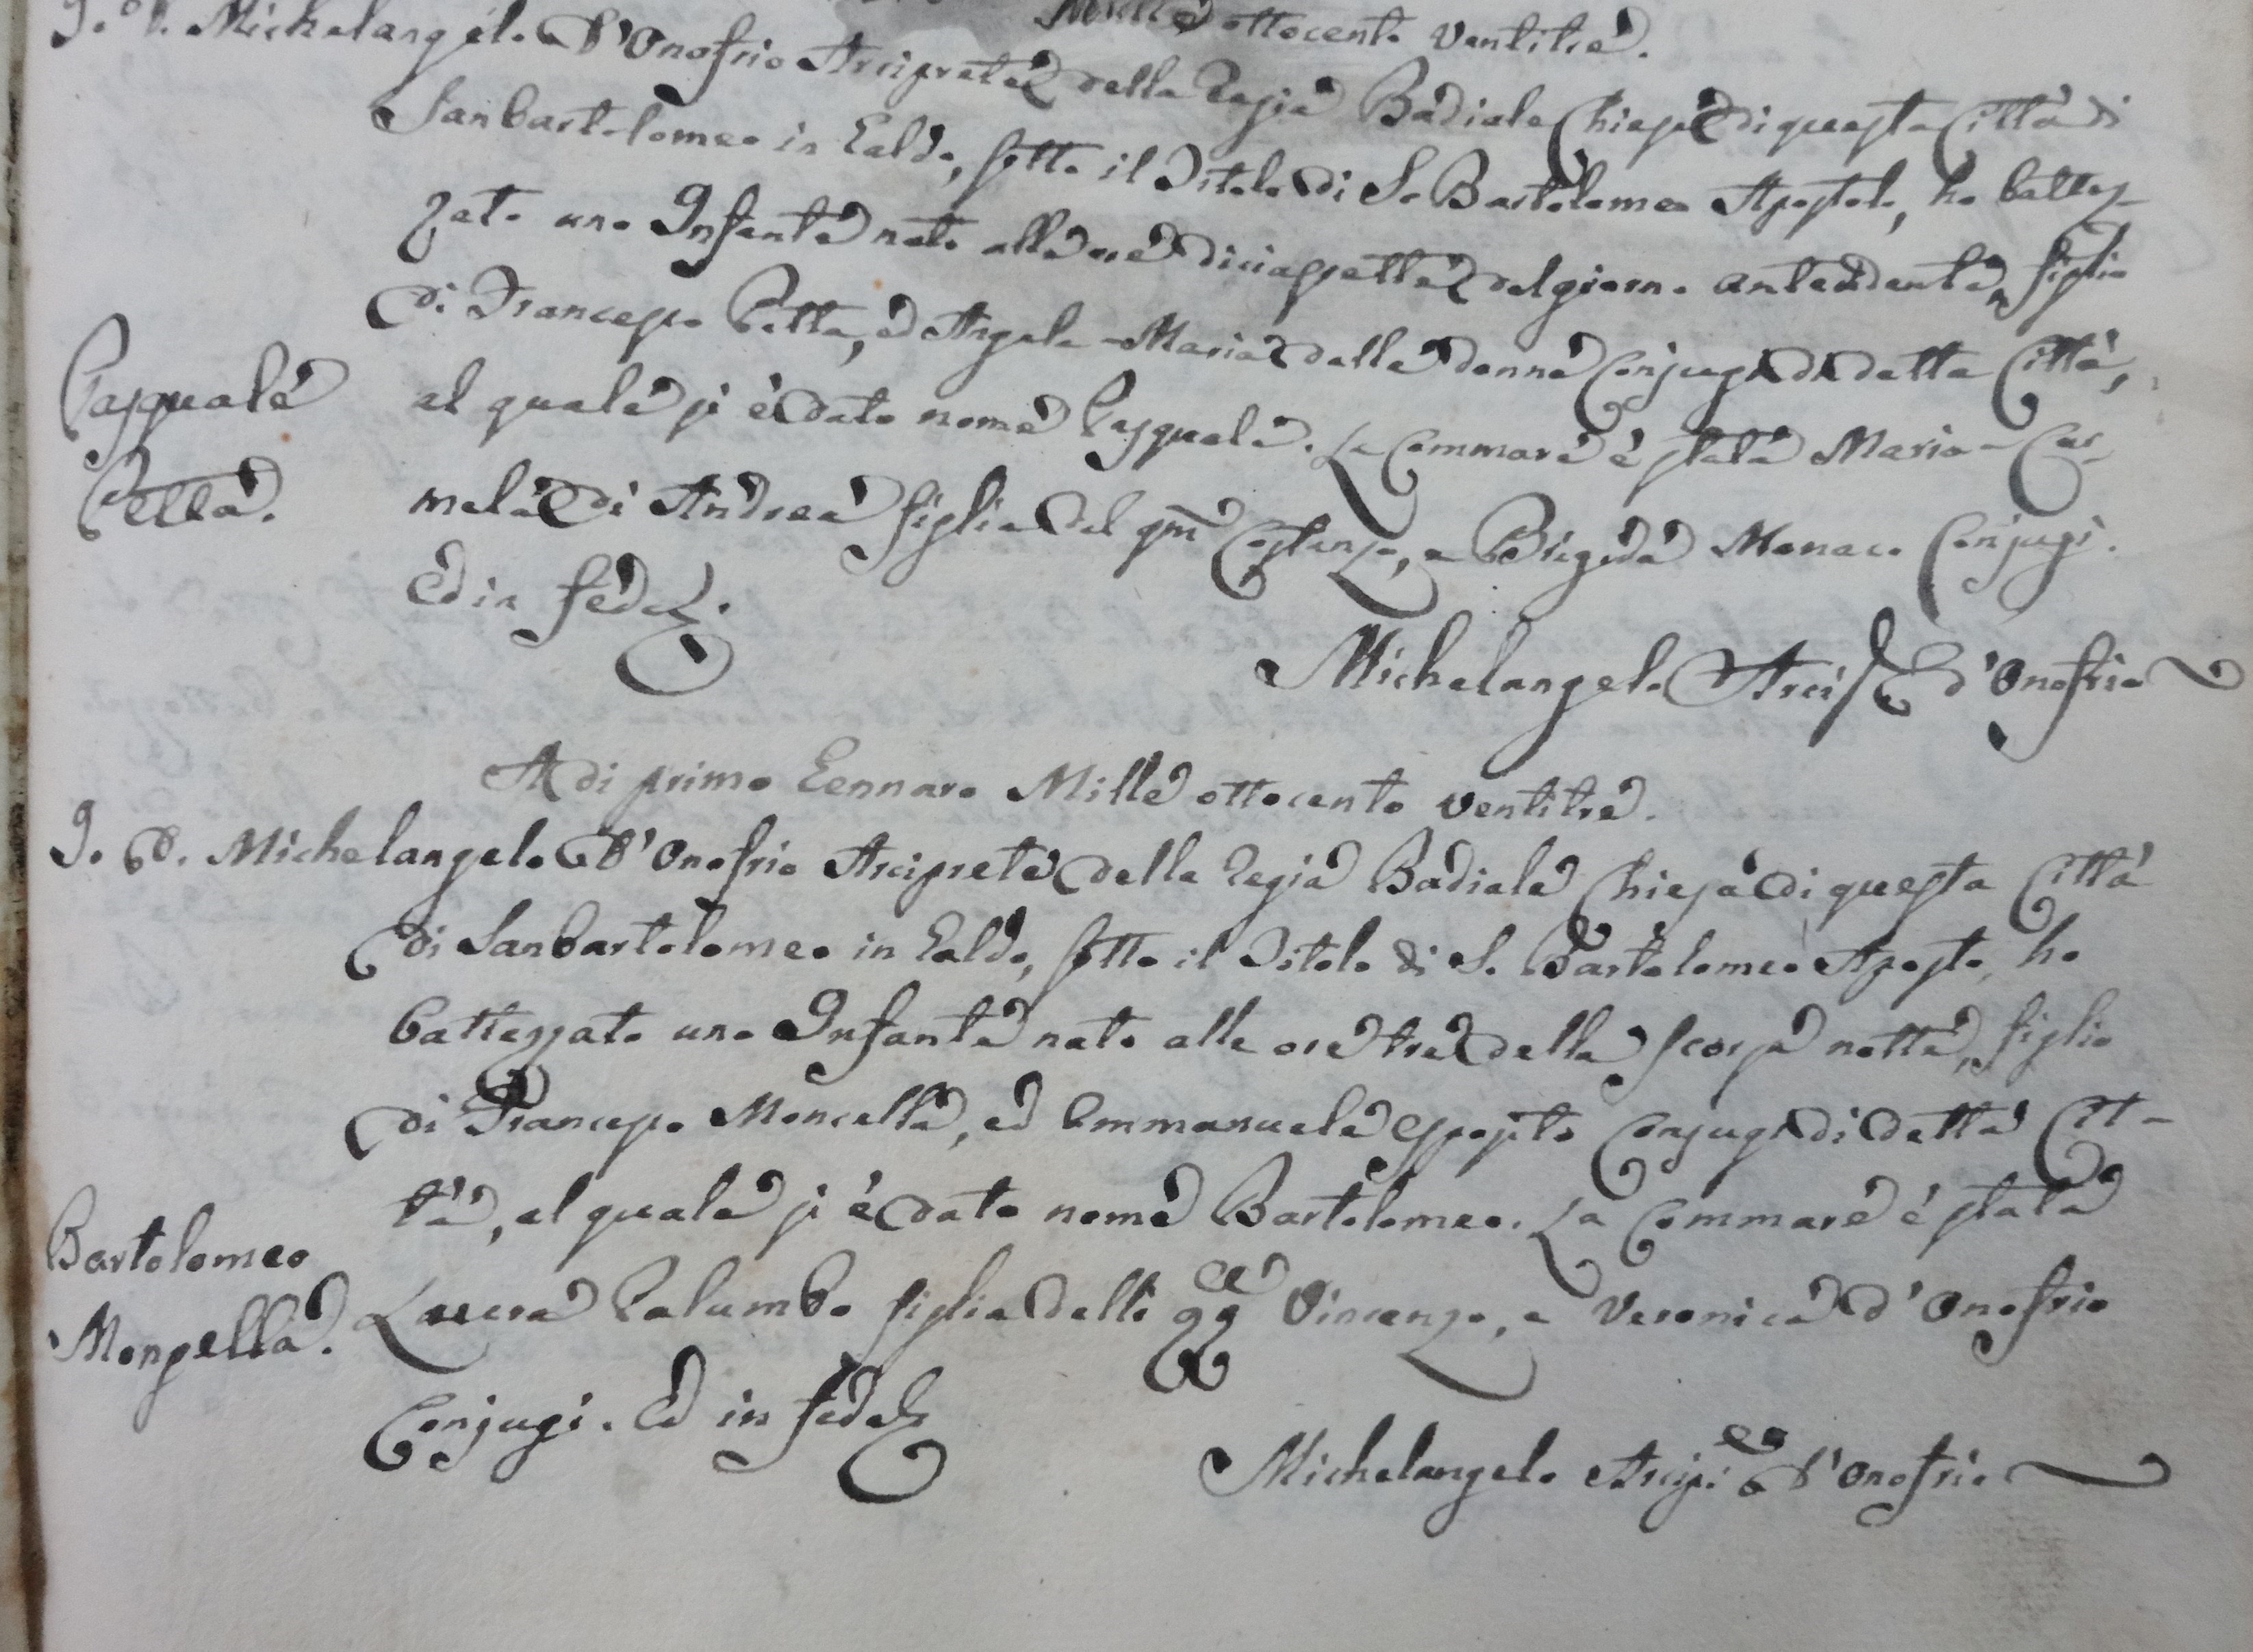 Mille ottocento Ventitre.
Io D. Michelangelo D'Onofrio Arciprete della Regia Badiale Chiesa di questa Città di
Sanbartolomeo in Galdo, sotto il Titolo di S. Bartolomeo Apostolo, ho battez-
zato uno Infante nato alle ore diciassette del giorno antecedente, figlio
di Francesco Petta, ed Angela-Maria della donna Conjugi di detta Città,
Pasquale al quale si è dato nome Pasquale. La Commare è stata Maria-Car-
Petta. mela di Andrea figlia del qm Costanzo, e Brigida Monaco Conjugi.
Ed in fede.
Michelangelo Arcip. d'Onofrio
A di primo Gennaro Mille ottocento ventitre.
Io D. Michelangelo D'Onofrio Arciprete della Regia Badiale Chiesa di questa Città
di Sanbartolomeo in Galdo, sotto il Titolo di S. Bartolomeo Aposto, ho
battezzato uno Infante nato alle ore tre della scorsa notte, figlio
di Francesco Moncella, ed Emmanuela Esposito Conjugi di detta Cit-
tà, al quale si è dato nome Bartolomeo. La Commare è stata
Bartolomeo
Monsella. Laura Palumbo figlia delli qq Vincenzo, e Veronica d'Onofrio
Conjugi. Ed in fede
Michelangelo Arcip. D'Onofrio